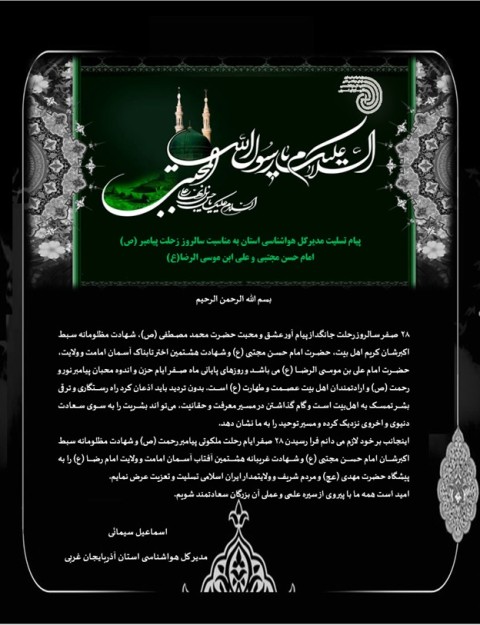 السلام علیکم یا رسول الله
السلام علیک یا حسن بن علی
المجتبی
پیام تسلیت مدیرکل هواشناسی استان به مناسبت سالروز رحلت پیامبر (ص)
امام حسن مجتبی و علی ابن موسی الرضا(ع)
بسم الله الرحمن الرحیم
۲۸ صفر سالروز رحلت جانگداز پیام آور عشق و محبت حضرت محمد مصطفی (ص)، شهادت مظلومانه سبط
اکبرشان کریم اهل بیت، حضرت امام حسن مجتبی (ع) و شهادت هشتمین اختر تابناک آسمان امامت و ولایت،
حضرت امام علی بن موسی الرضا (ع) می باشد و روزهای پایانی ماه صفر ایام حزن و اندوه محبان پیامبر نور و
رحمت (ص) و ارادتمندان اهل بیت عصمت و طهارت (ع) است، بدون تردید باید اذعان کرد راه رستگاری و ترقی
بشر تمسک به اهل‌بیت است و گام گذاشتن در مسیر معرفت و حقانیت، می‌تواند بشریت را به سوی سعادت
دنیوی و اخروی نزدیک کرده و مسیر توحید را به ما نشان دهد.
اینجانب بر خود لازم می دانم فرا رسیدن ۲۸ صفر ایام رحلت ملکوتی پیامبر رحمت (ص) و شهادت مظلومانه سبط
اکبرشان امام حسن مجتبی (ع) و شهادت غریبانه هشتمین آفتاب آسمان امامت و ولایت امام رضا (ع) را به
پیشگاه حضرت مهدی (عج) و مردم شریف و ولایتمدار ایران اسلامی تسلیت و تعزیت عرض نمایم.
امید است همه ما با پیروی از سیره علمی و عملی آن بزرگان سعادتمند شویم.
اسماعیل سیمائی
مدیرکل هواشناسی استان آذربایجان غربی